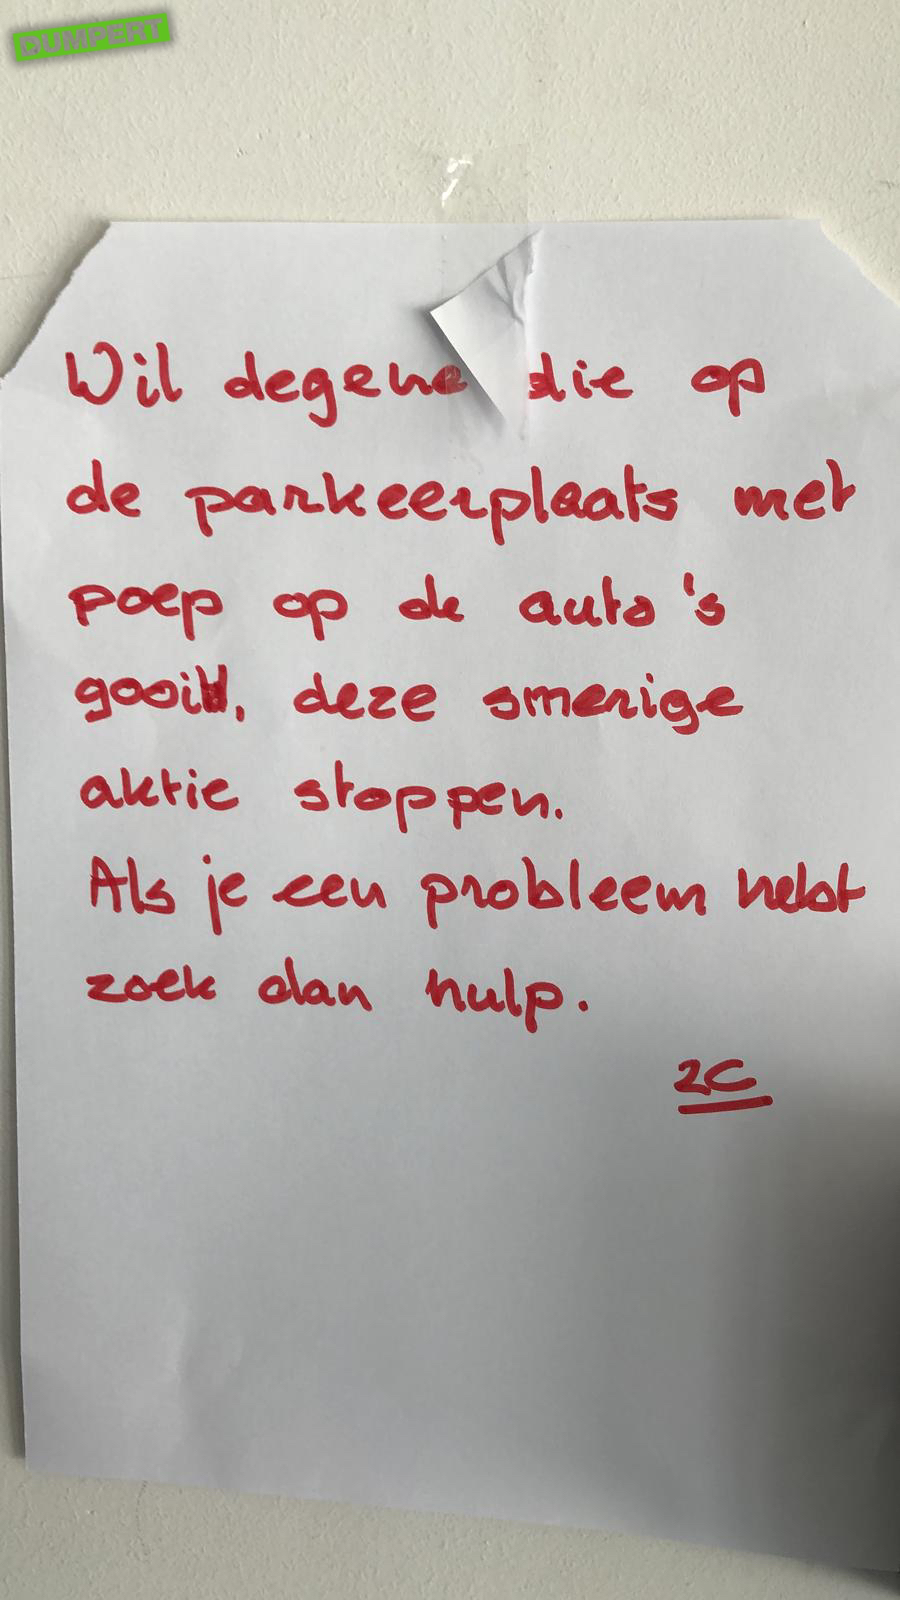 DUMPERT
Wil degene die op
de parkeerplaats met
poep op de auto's
gooit, deze smerige
aktie stoppen.
Als je een probleem hebt
zoek dan hulp.
2C